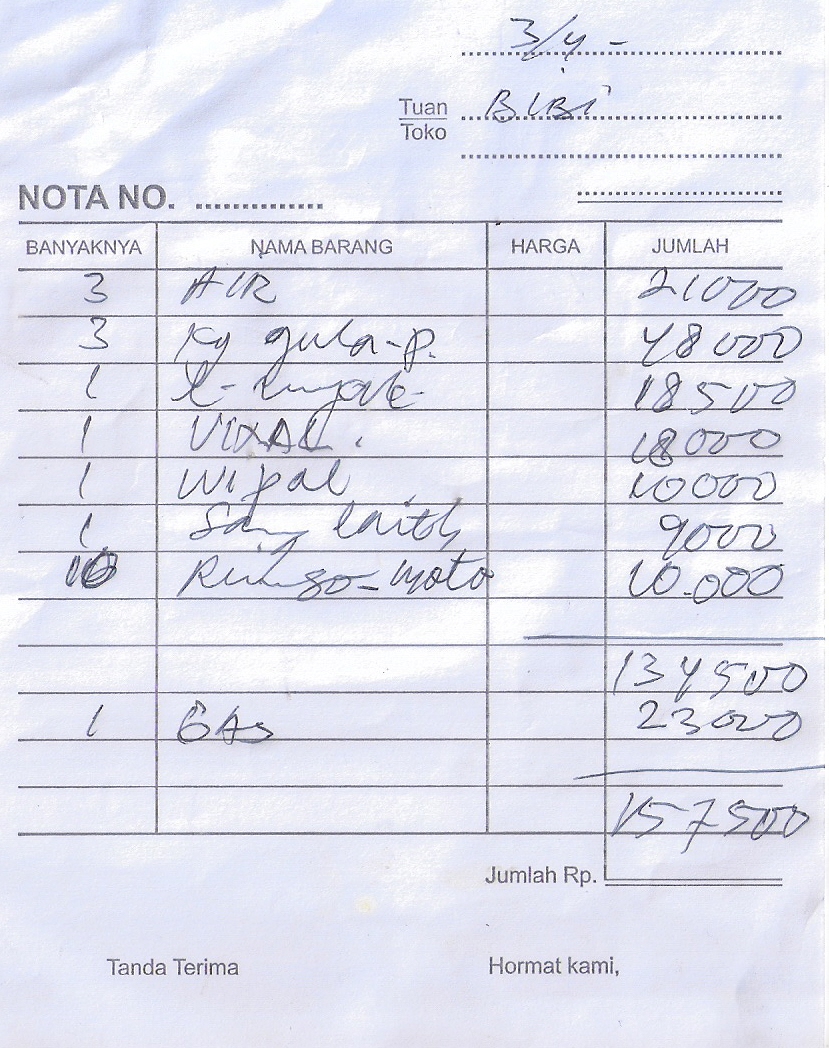 3/4 -
Tuan BIBI
Toko
NOTA NO. ....................
BANYAKNYA NAMA BARANG HARGA JUMLAH
3 AIR 21000
3 Kg gula-p. 48000
1 18500
1 VIXAL. 18000
1 Wipol 10000
1 9000
10 10.000
134500
1 GAS 23000
157500
Jumlah Rp.
Tanda Terima Hormat kami,